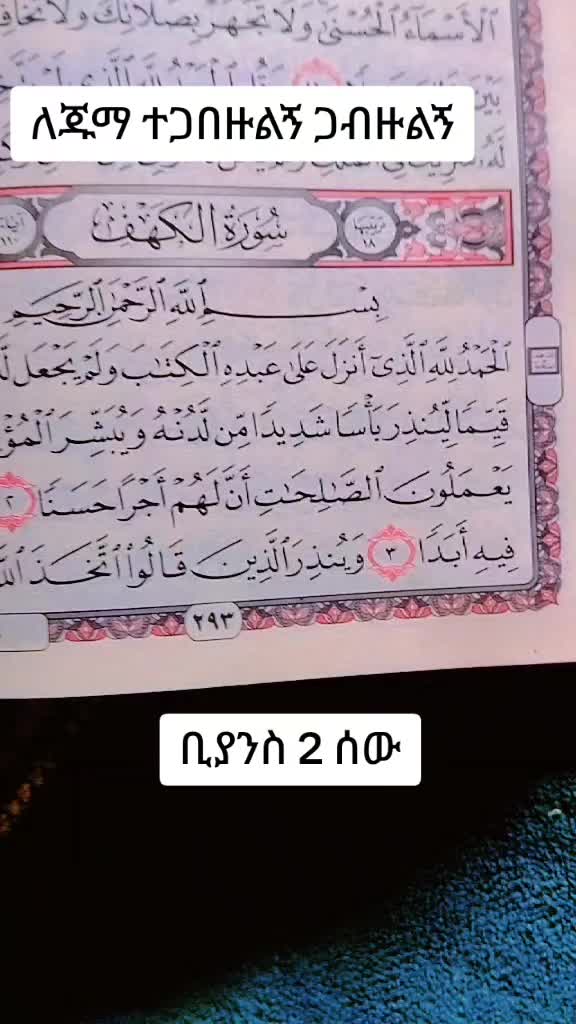 ٱلْأَسْمَآءُ ٱلْحُسْنَىٰ وَلَا تَجْهَرْ بِصَلَاتِكَ وَلَا تُخَافِ
ለጁማ ተጋበዙልኝ ጋብዙልኝ
سُورَةُ الكَهْفِ
ترتيبها ١٨
آياتها ١١٠
بِسْمِ ٱللَّهِ ٱلرَّحْمَٰنِ ٱلرَّحِيمِ
ٱلْحَمْدُ لِلَّهِ ٱلَّذِىٓ أَنزَلَ عَلَىٰ عَبْدِهِ ٱلْكِتَٰبَ وَلَمْ يَجْعَل
قَيِّمًا لِّيُنذِرَ بَأْسًا شَدِيدًا مِّن لَّدُنْهُ وَيُبَشِّرَ
يَعْمَلُونَ ٱلصَّٰلِحَٰتِ أَنَّ لَهُمْ أَجْرًا حَسَنًا ٢
فِيهِ أَبَدًا ٣ وَيُنذِرَ ٱلَّذِينَ قَالُوا۟ ٱتَّخَذَ
٢٩٣
ቢያንስ 2 ሰው